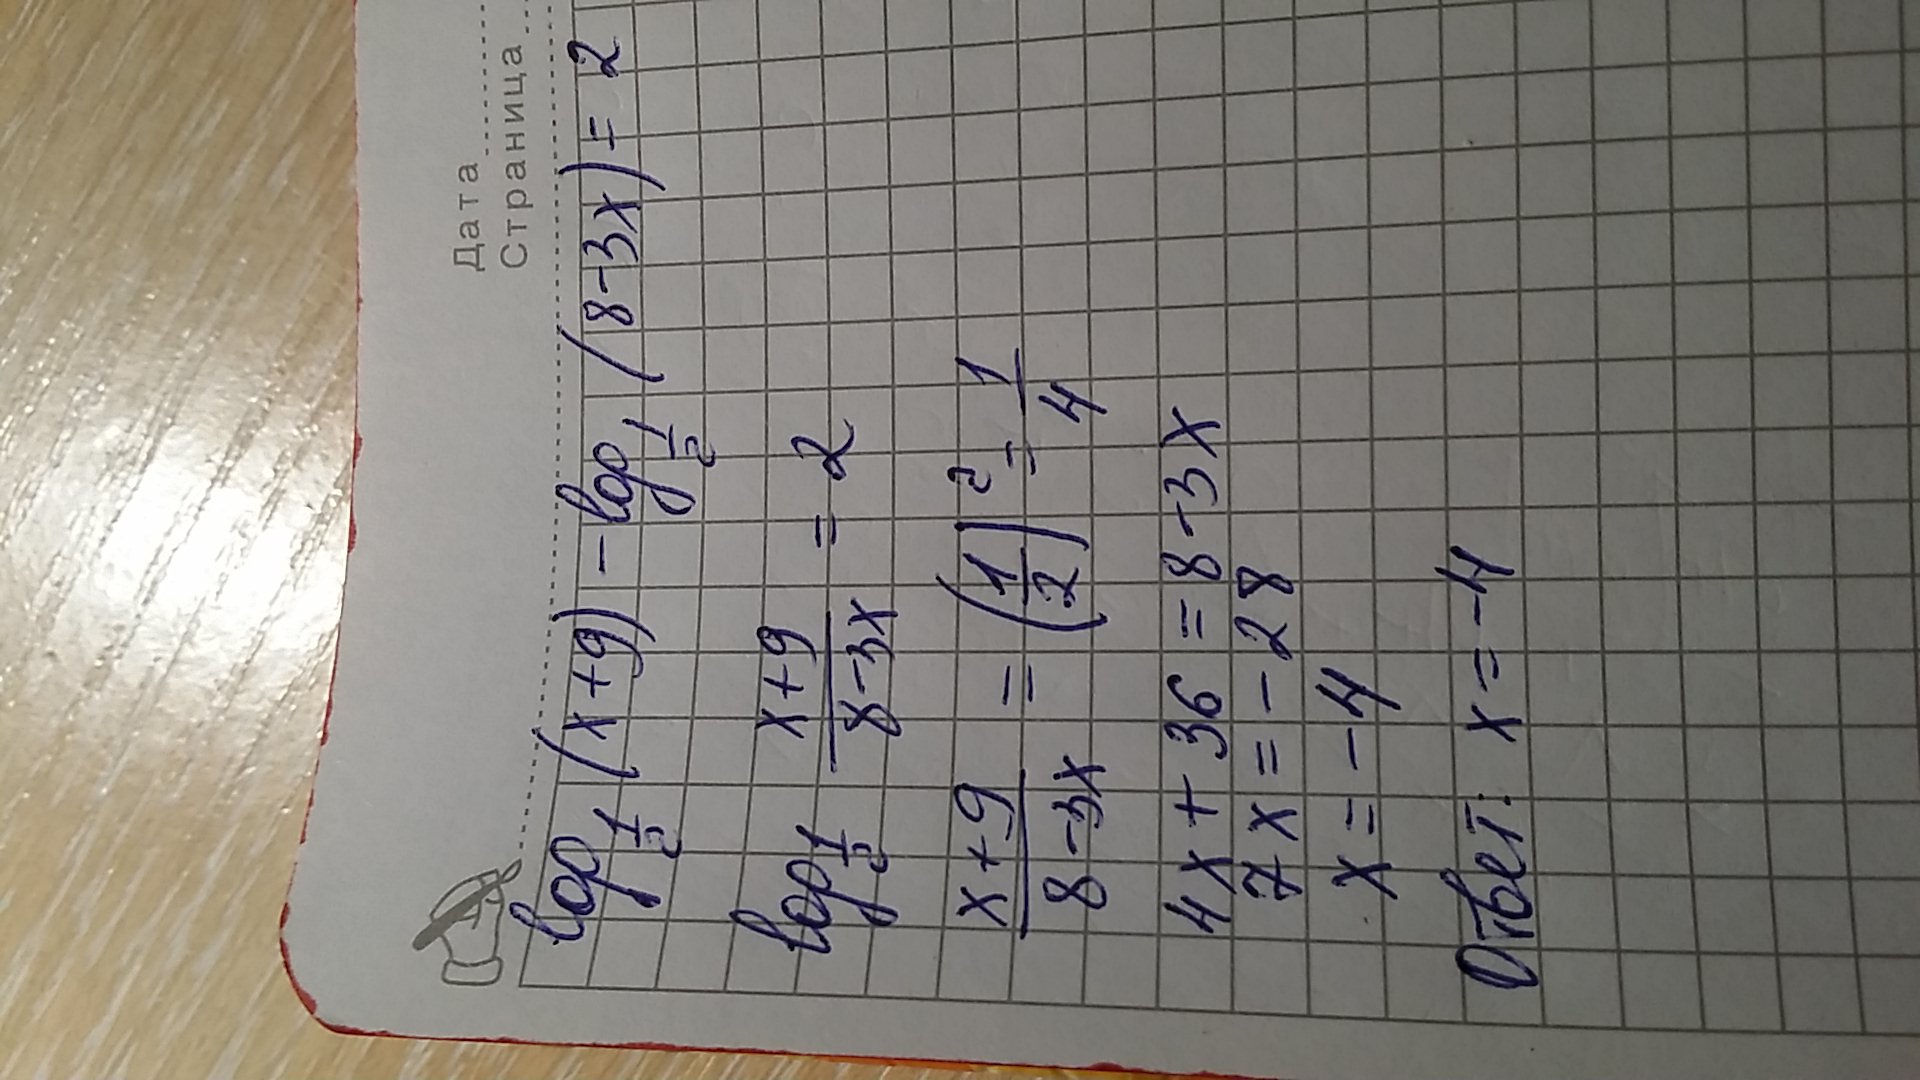 Дата
Страница
log 1/2 (x+9) - log 1/2 (8-3x) = 2
log 1/2 (x+9)/(8-3x) = 2
(x+9)/(8-3x) = (1/2)² = 1/4
4x+36 = 8-3x
7x = -28
x = -4
Ответ: x = -4